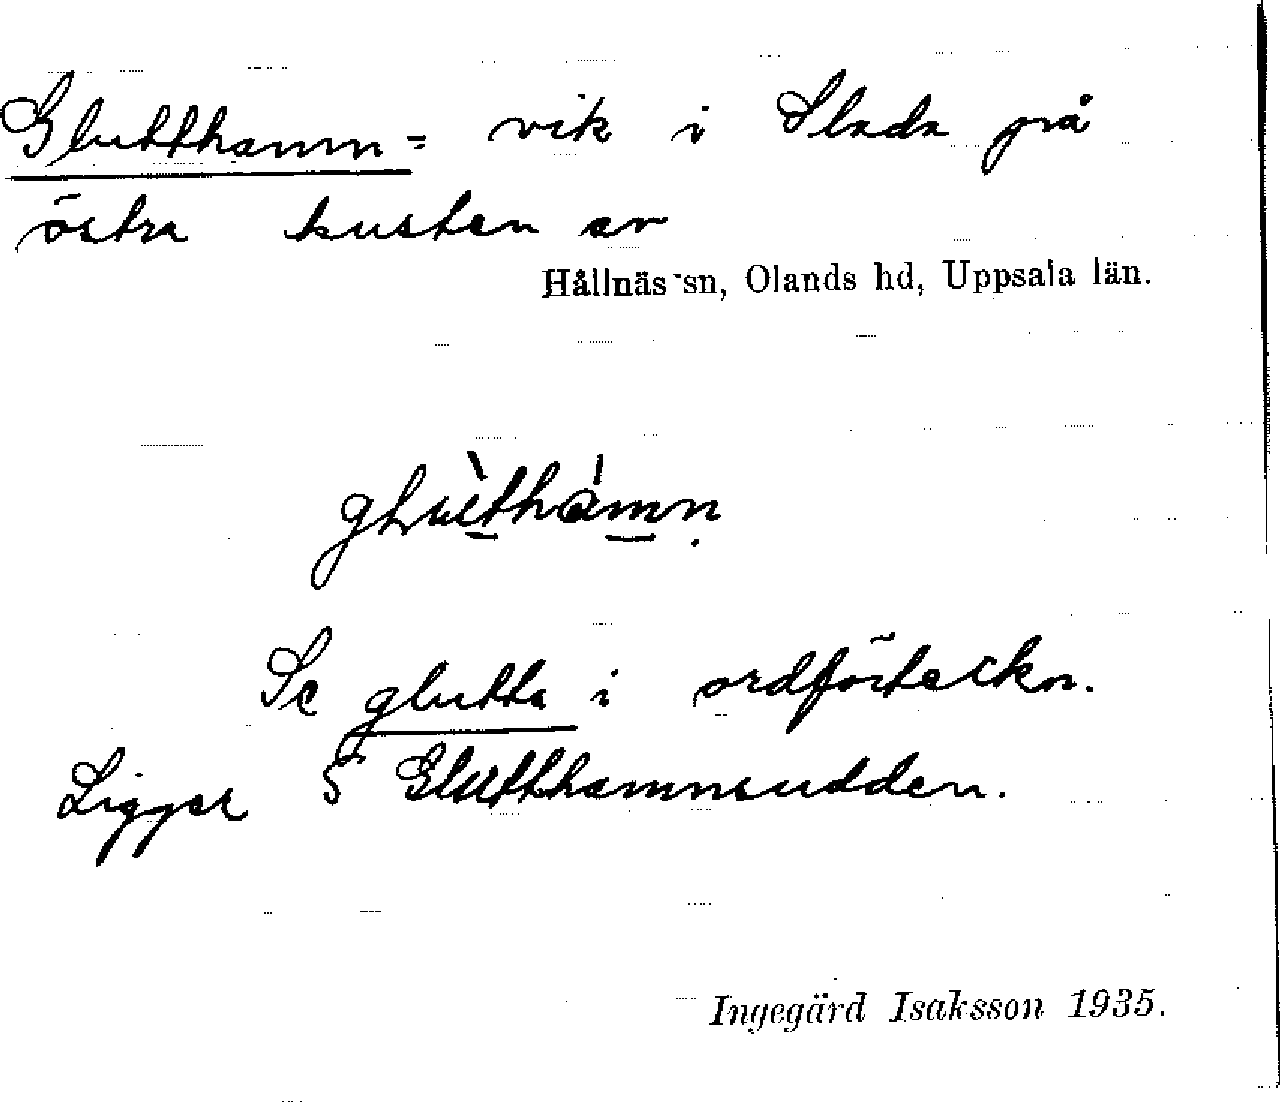 Glutthamn = vik i Slada på
östra kusten av
Hållnäs sn, Olands hd, Uppsala län.
glùthámn
Se glutta i ordförteckn.
Ligger S Glutthamnsudden.
Ingegärd Isaksson 1935.